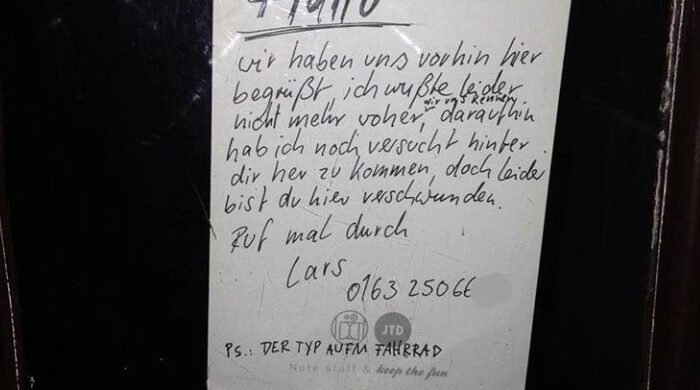 Hallo
wir haben uns vorhin hier
begrüßt, ich wußte leider
nicht mehr voher, wir uns kennen, daraufhin
hab ich noch versucht hinter
dir her zu kommen, doch leider
bist du hier verschwunden.
Ruf mal durch
Lars
0163 25066
JTD
PS.: DER TYP AUFM FAHRRAD
Note stuff & keep the fun